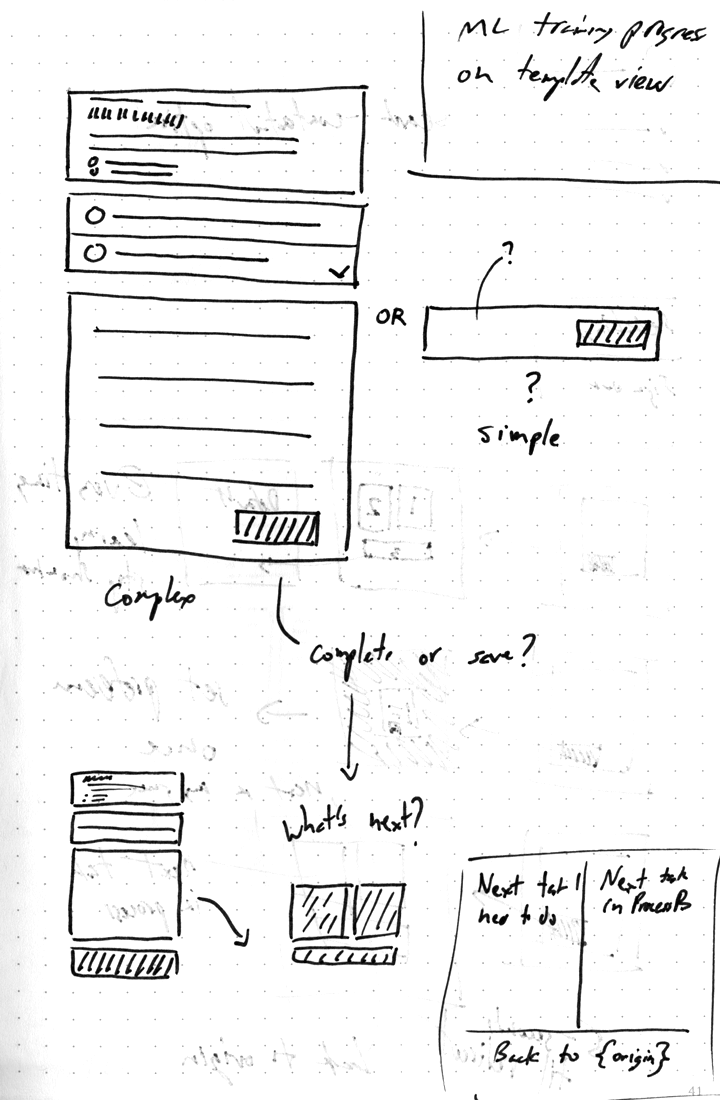 ML training progress
on template view
?
OR
?
simple
Complex
Complete or save?
What's next?
Next task I
need to do
Next task
in Process
Back to {origin}
41